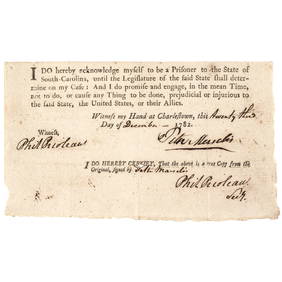 I DO hereby acknowledge myself to be a Prisoner to the State of
South-Carolina, until the Legislature of the said State shall deter-
mine on my Case: And I do promise and engage, in the mean Time,
not to do, or cause any Thing to be done, prejudicial or injurious to
the said State, the United States, or their Allies.
Witness my Hand at Charlestown, this twenty third
Day of December 1782.
Witness,
Phil Prioleau
I DO HEREBY CERTIFY, That the above is a true Copy from the
Original, signed by
Phil Prioleau
Secy.